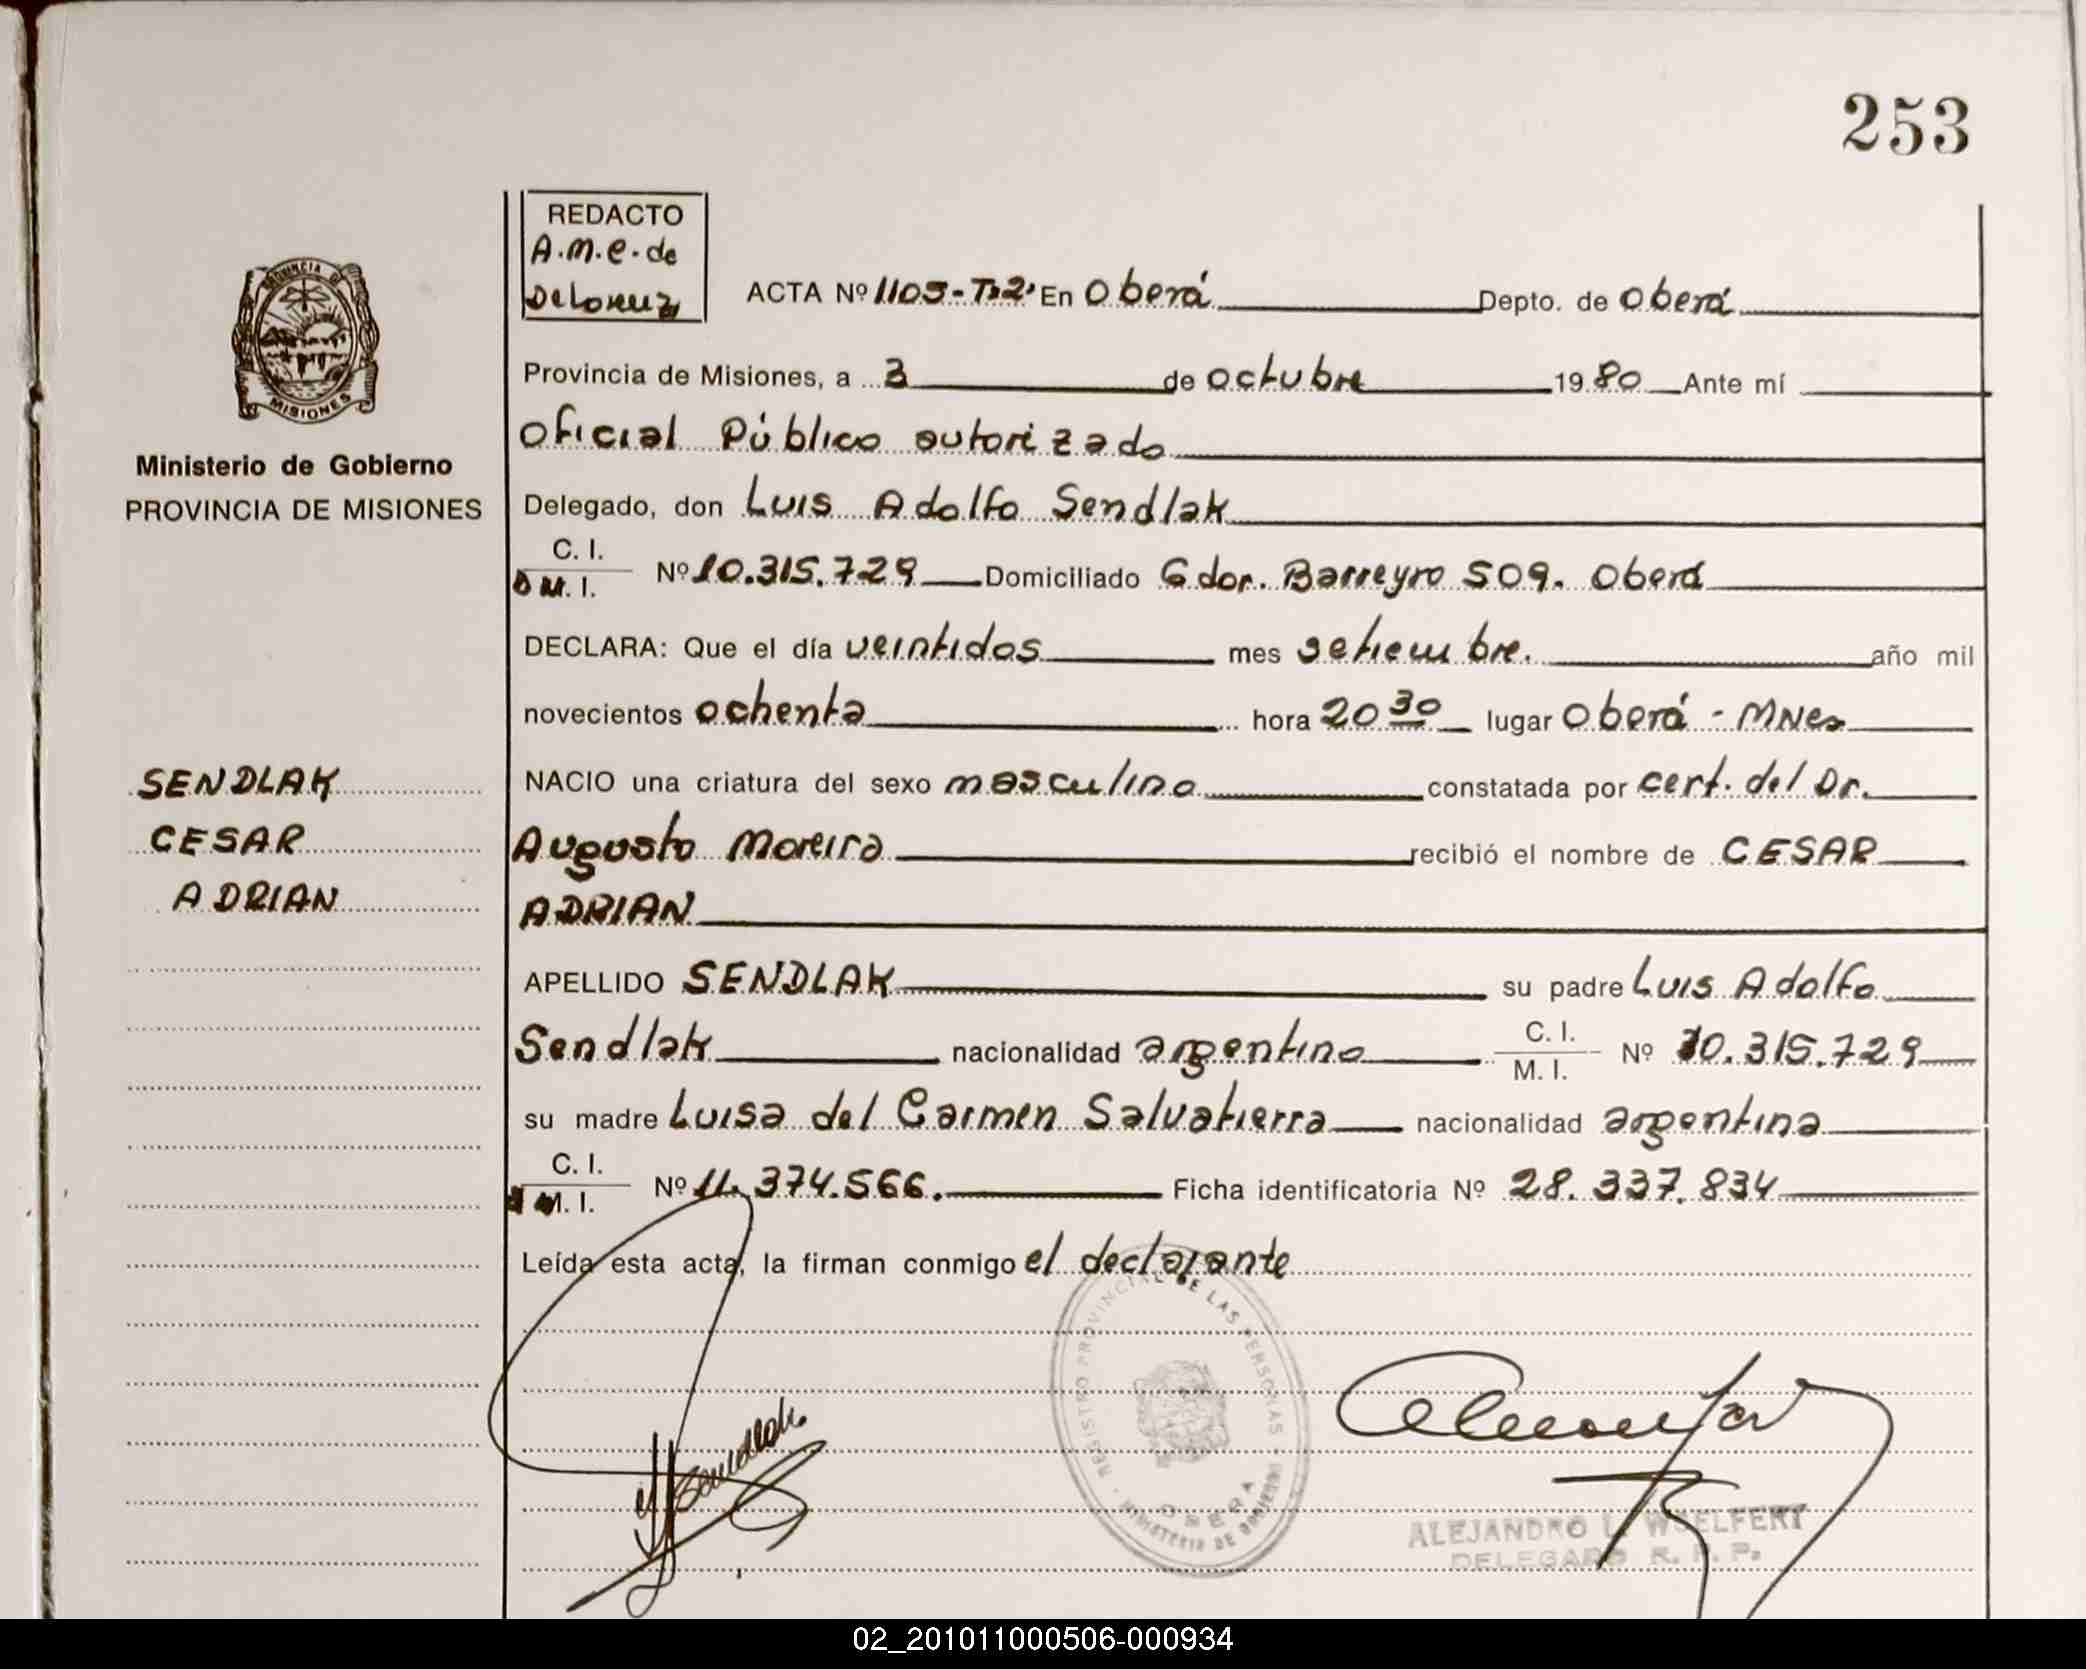 253
REDACTO
A.M.E. de
ACTA Nº 1105-T.2' En Oberá Depto. de Oberá
Provincia de Misiones, a 3 de octubre 1980 Ante mí
Oficial Público autorizado
Delegado, don Luis Adolfo Sendlak
C. I.
D M. I. Nº 10.315.729 Domiciliado Gdor. Barreyro 509. Oberá
DECLARA: Que el día veintidos mes setiembre. año mil
novecientos ochenta hora 20 30 lugar Oberá - Mnes
NACIO una criatura del sexo masculino constatada por cert. del Dr.
Augusto Moreira recibió el nombre de CESAR
ADRIAN
APELLIDO SENDLAK su padre Luis Adolfo
Sendlak nacionalidad argentino C. I. M. I. Nº 10.315.729
su madre Luisa del Carmen Salvatierra nacionalidad argentina
C. I.
M. I. Nº 11.374.566. Ficha identificatoria Nº 28.337.834
Leída esta acta, la firman conmigo el declarante
PROVINCIA DE
MISIONES
Ministerio de Gobierno
PROVINCIA DE MISIONES
SENDLAK
CESAR
ADRIAN
Sendlak
REGISTRO PROVINCIAL DE LAS PERSONAS
OBERA
MINISTERIO DE GOBIERNO
ALEJANDRO L. WOELFERT
DELEGADO R. P. P.
02_201011000506-000934